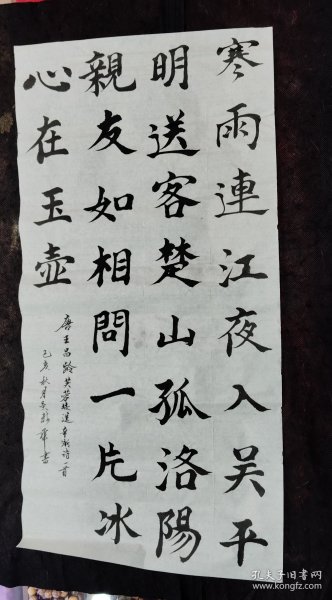 寒雨連江夜入吴平
明送客楚山孤洛陽
親友如相問一片冰
心在玉壶
唐王昌龄芙蓉楼送辛渐诗一首
己亥秋月吴
書
孔夫子旧书网